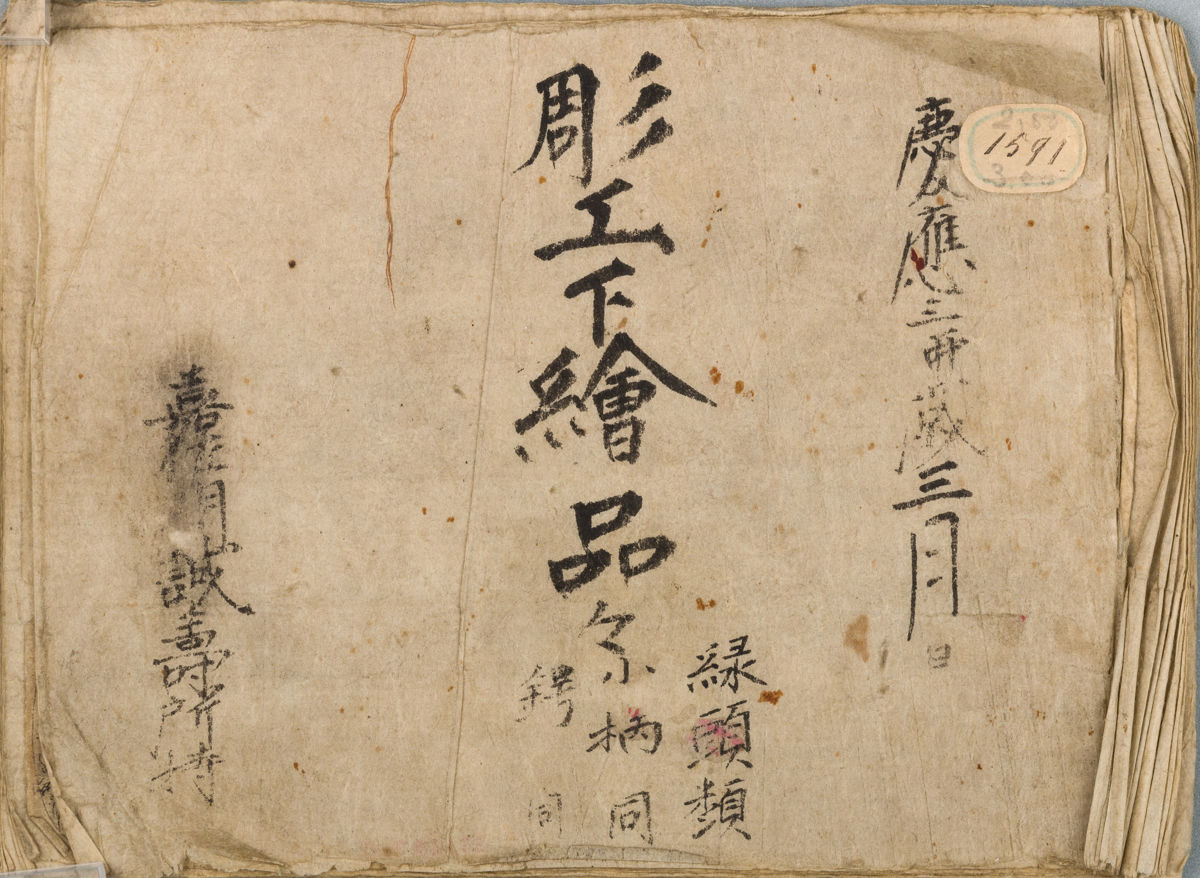 慶應三卯歳三月 日
1591
彫工下繪品々
縁頭類
小柄同
鍔同
嘉月誠壽所持